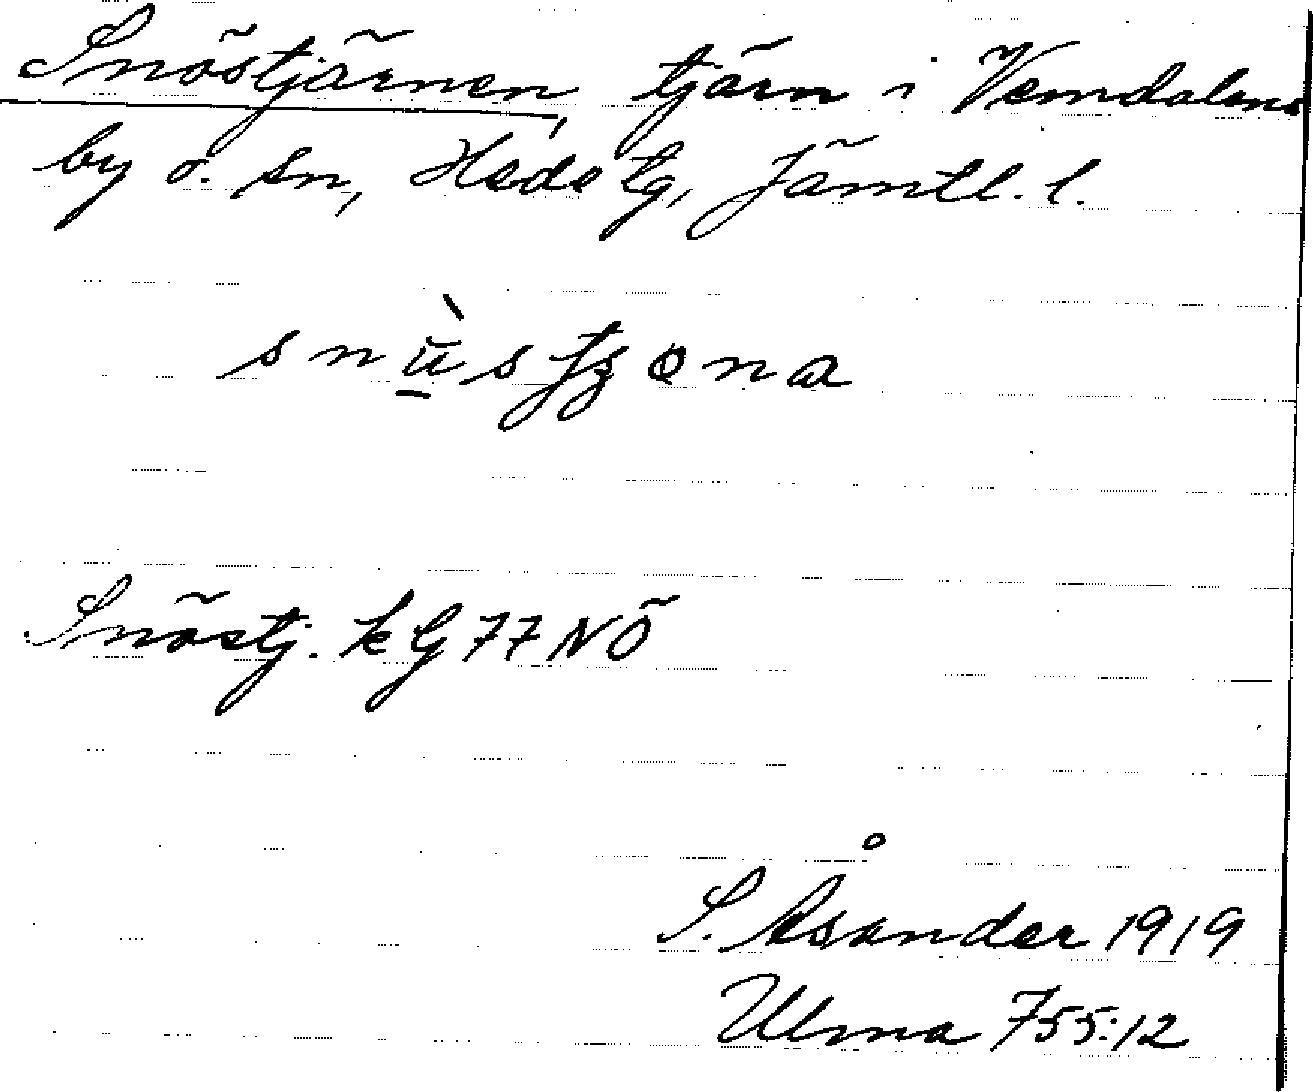 Snöstjärnen, tjärn i Vemdalens
by o. sn, Hede tg, Jämtl. l.
Snöstj. kG77NÖ
S. Åsander 1919
Ulma 755:12